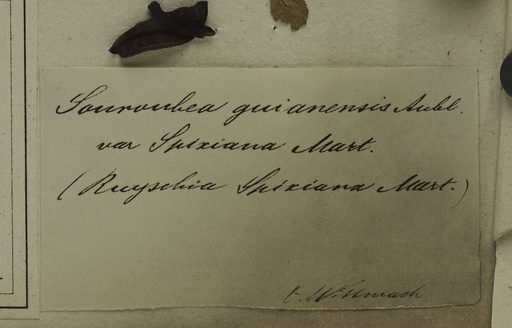 Souroubea guianensis Aubl.
var Spixiana Mart.
(Ruyschia Spixiana Mart.)
t. Wittmack